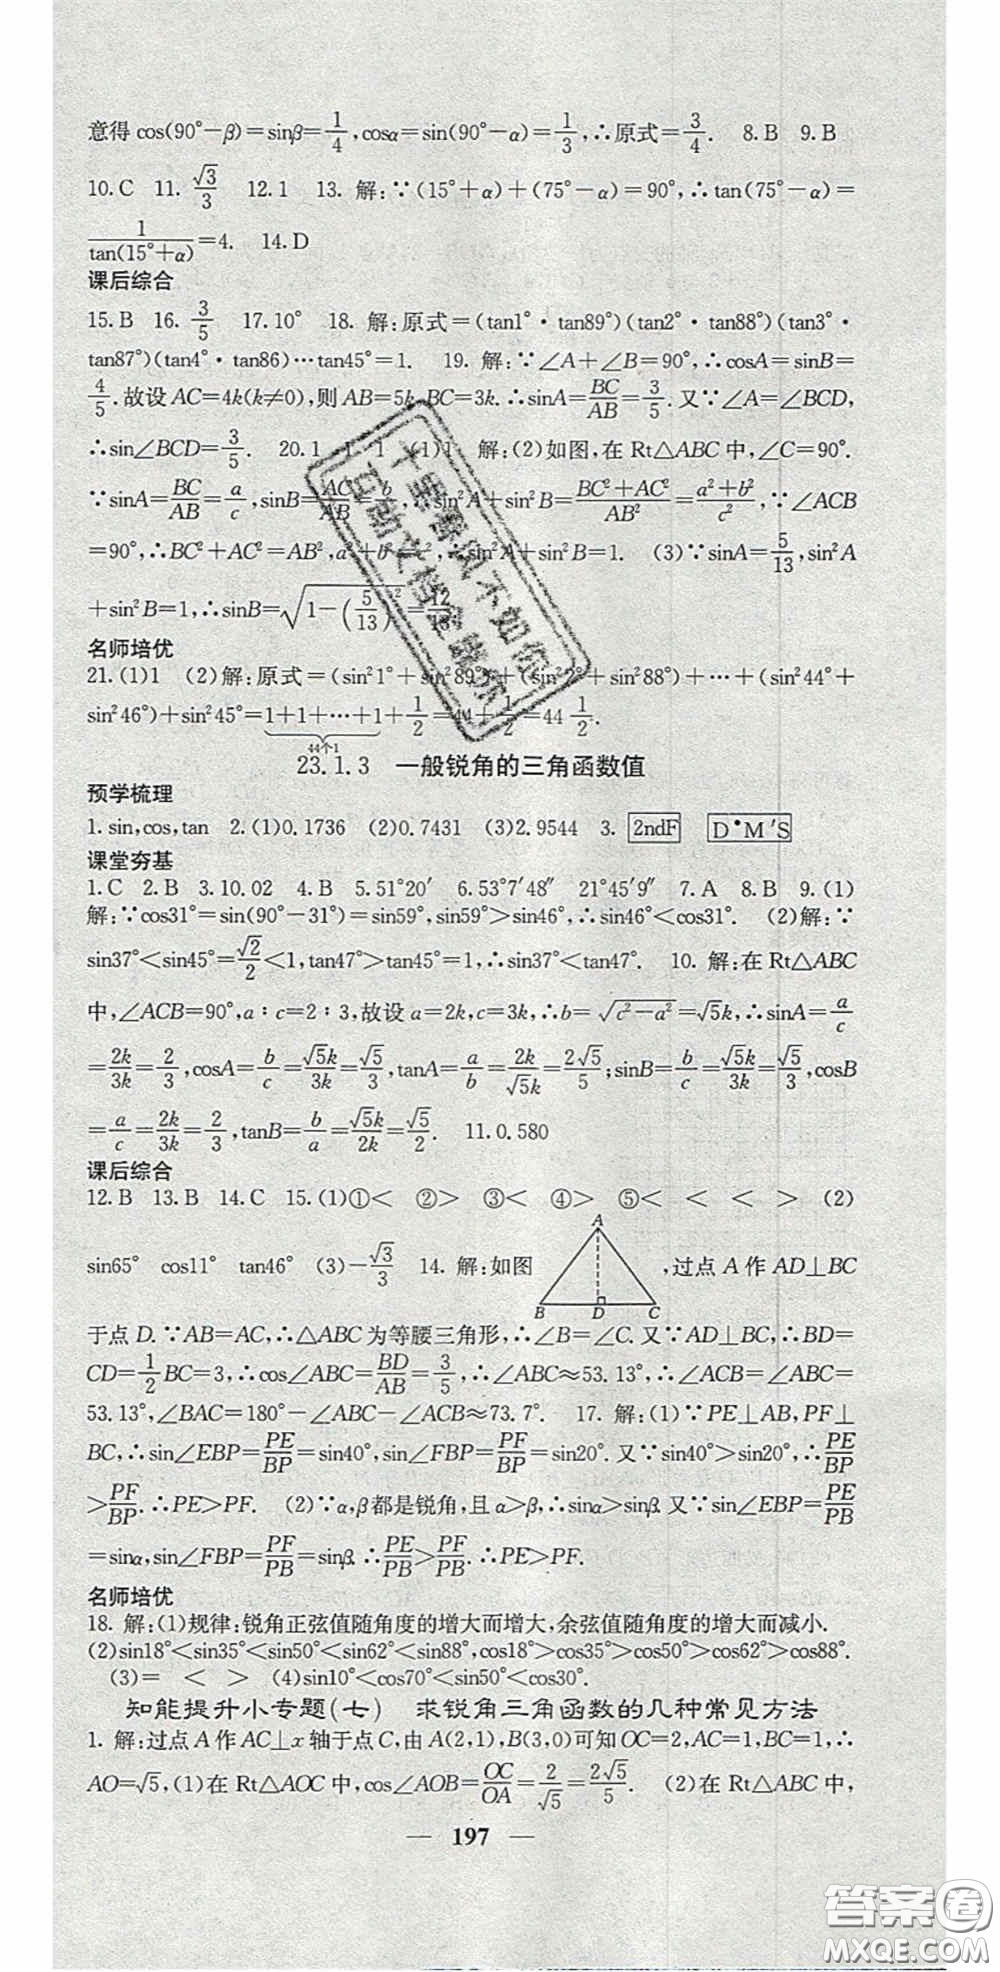 意得 cos(90°－β)＝sinβ＝1/4，cosα＝sin(90°－α)＝1/3，∴原式＝3/4. 8.B 9.B
10.C 11. √3/3 12.1 13. 解：∵(15°＋α)＋(75°－α)＝90°，∴tan(75°－α)＝
1/tan(15°＋α)＝4. 14.D
课后综合
15.B 16. 3/5 17.10° 18. 解：原式＝(tan1°·tan89°)(tan2°·tan88°)(tan3°·
tan87°)(tan4°·tan86)…tan45°＝1. 19. 解：∵∠A＋∠B＝90°，∴cosA＝sinB＝
4/5.故设 AC＝4k(k≠0)，则 AB＝5k，BC＝3k.∴sinA＝BC/AB＝3/5.又∵∠A＝∠BCD，
∴sin∠BCD＝3/5. 20.1 1 1 (1)1 解：(2)如图，在 Rt△ABC 中，∠C＝90°.
∵sinA＝BC/AB＝a/c，sinB＝AC/AB＝b/c，∴sin²A＋sin²B＝(BC²＋AC²)/AB²＝(a²＋b²)/c²，∵∠ACB
＝90°，∴BC²＋AC²＝AB²，a²＋b²＝c²，∴sin²A＋sin²B＝1. (3)∵sinA＝5/13，sin²A
＋sin²B＝1，∴sinB＝√(1－(5/13)²)＝12/13.
名师培优
21.(1)1 (2)解：原式＝(sin²1°＋sin²89°)＋(sin²2°＋sin²88°)＋…＋(sin²44°＋
sin²46°)＋sin²45°＝1＋1＋…＋1＋1/2＝44＋1/2＝44 1/2.
44个1
23.1.3 一般锐角的三角函数值
预学梳理
1.sin，cos，tan 2.(1)0.1736 (2)0.7431 (3)2.9544 3. 2ndF D°M′S
课堂夯基
1.C 2.B 3.10.02 4.B 5.51°20′ 6.53°7′48″ 21°45′9″ 7.A 8.B 9.(1)
解：∵cos31°＝sin(90°－31°)＝sin59°，sin59°＞sin46°，∴sin46°＜cos31°. (2)解：∵
sin37°＜sin45°＝√2/2＜1，tan47°＞tan45°＝1，∴sin37°＜tan47°. 10. 解：在 Rt△ABC
中，∠ACB＝90°，a∶c＝2∶3，故设 a＝2k，c＝3k，∴b＝√(c²－a²)＝√5k，∴sinA＝a/c
＝2k/3k＝2/3，cosA＝b/c＝√5k/3k＝√5/3，tanA＝a/b＝2k/√5k＝2√5/5；sinB＝b/c＝√5k/3k＝√5/3，cosB
＝a/c＝2k/3k＝2/3，tanB＝b/a＝√5k/2k＝√5/2. 11.0.580
课后综合
12.B 13.B 14.C 15.(1)①＜ ②＞ ③＜ ④＞ ⑤＜ ＜ ＜ ＞ (2)
sin65° cos11° tan46° (3)－√3/3 14. 解：如图 A B D C ，过点 A 作 AD⊥BC
于点 D.∵AB＝AC，∴△ABC 为等腰三角形，∴∠B＝∠C.又∵AD⊥BC，∴BD＝
CD＝1/2BC＝3，∴cos∠ABC＝BD/AB＝3/5，∴∠ABC≈53.13°.∴∠ACB＝∠ABC＝
53.13°，∠BAC＝180°－∠ABC－∠ACB≈73.7°. 17. 解：(1)∵PE⊥AB，PF⊥
BC，∴sin∠EBP＝PE/BP＝sin40°，sin∠FBP＝PF/BP＝sin20°.又∵sin40°＞sin20°，∴PE/BP
＞PF/BP.∴PE＞PF. (2)∵α，β都是锐角，且 α＞β，∴sinα＞sinβ.又∵sin∠EBP＝PE/PB
＝sinα，sin∠FBP＝PF/PB＝sinβ.∴PE/PB＞PF/PB.∴PE＞PF.
名师培优
18. 解：(1)规律：锐角正弦值随角度的增大而增大，余弦值随角度的增大而减小.
(2)sin18°＜sin35°＜sin50°＜sin62°＜sin88°，cos18°＞cos35°＞cos50°＞cos62°＞cos88°.
(3)＝ ＜ ＞ (4)sin10°＜cos70°＜sin50°＜cos30°.
知能提升小专题(七) 求锐角三角函数的几种常见方法
1. 解：过点 A 作 AC⊥x 轴于点 C，由 A(2，1)，B(3，0)可知 OC＝2，AC＝1，BC＝1，∴
AO＝√5，(1)在 Rt△AOC 中，cos∠AOB＝OC/OA＝2/√5＝2√5/5. (2)在 Rt△ABC 中，
— 197 —
十里春风不如你
互动文档金晓尔
答案圈
MXQE.COM